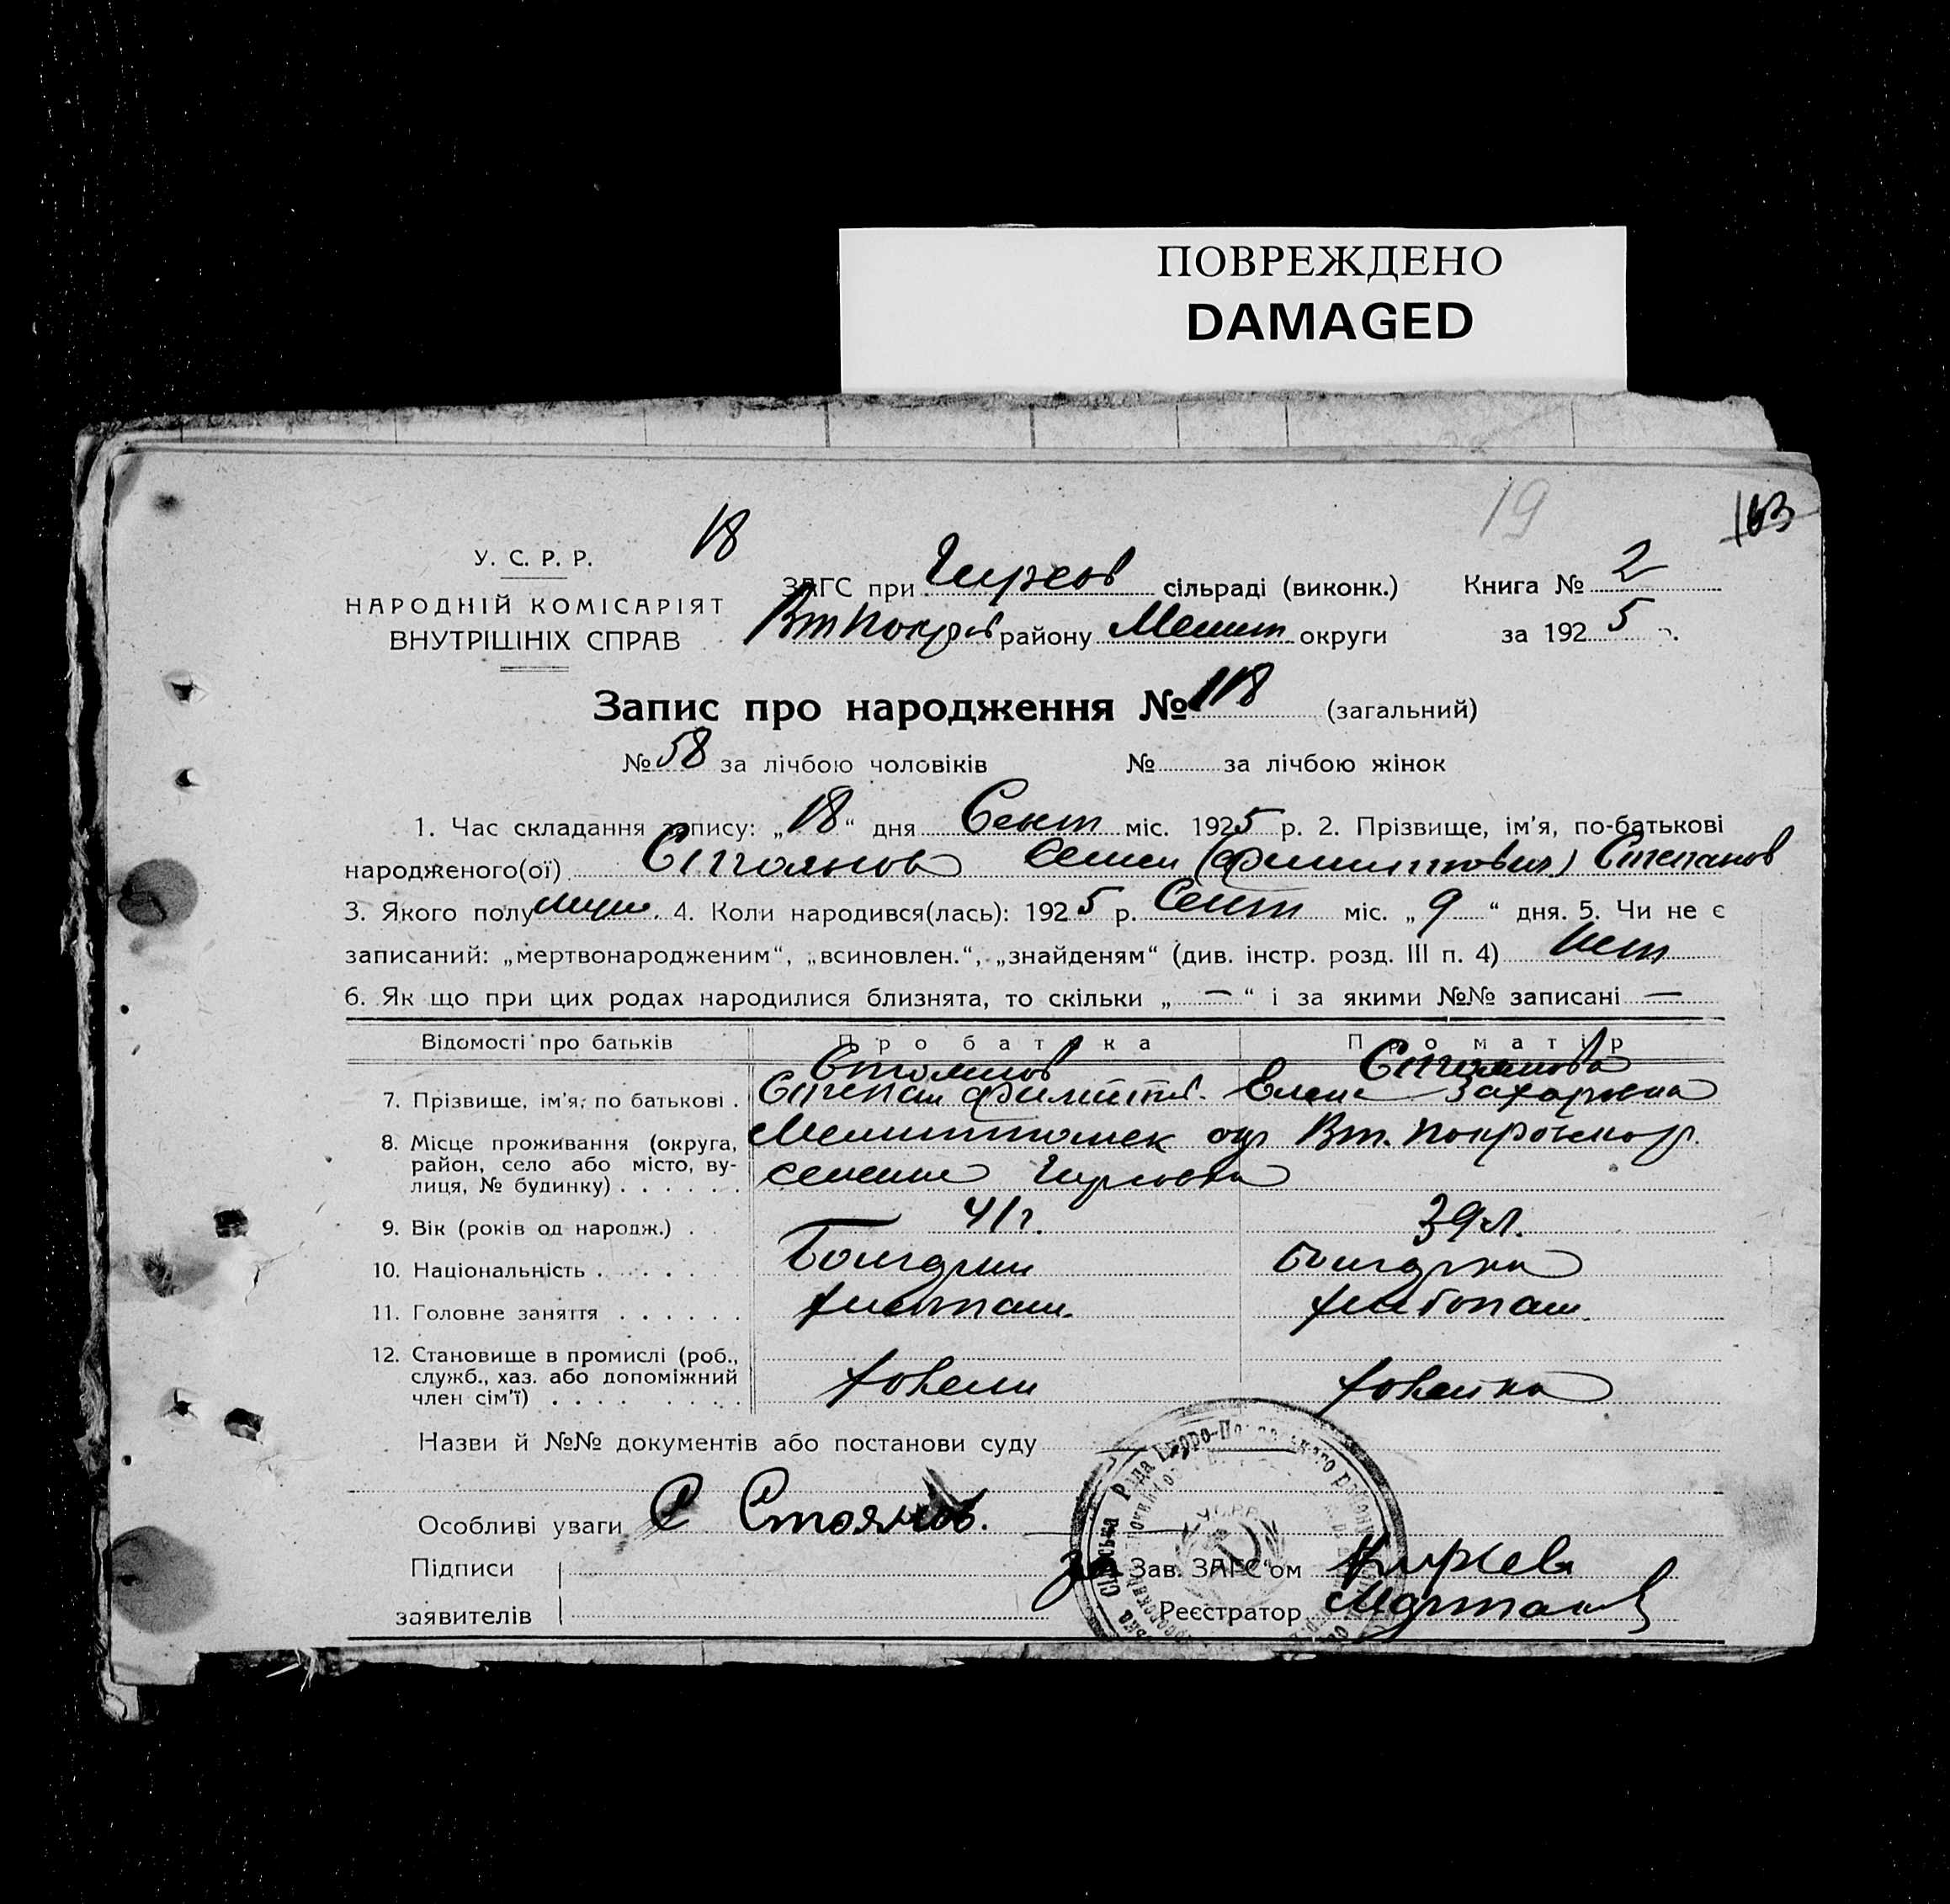 ПОВРЕЖДЕНО
DAMAGED
19
163
18
У. С. Р. Р.
НАРОДНІЙ КОМІСАРІЯТ
ВНУТРІШНІХ СПРАВ
ЗАГС при Гирсов сільраді (виконк.) Книга № 2
Вт Покров району Мелит округи за 1925 р.
Запис про народження № 118 (загальний)
№ 58 за лічбою чоловіків № за лічбою жінок
1. Час складання запису: „18“ дня Сент міс. 1925 р. 2. Прізвище, ім'я, по-батькові
народженого(ої) Стоянов Семен (Филиппович) Степанов
3. Якого полу муж. 4. Коли народився(лась): 1925 р. Сент міс. „9“ дня. 5. Чи не є
записаний: „мертвонародженим“, „всиновлен.“, „знайденям“ (див. інстр. розд. III п. 4) Нет
6. Як що при цих родах народилися близнята, то скільки „—“ і за якими №№ записані —
Відомості про батьків Про батька Про матір
Стоянов Стоянова
7. Прізвище, ім'я, по батькові . Степан Филипп. Елена Захаровна
8. Місце проживання (округа, район, село або місто, вулиця, № будинку) . . . . . . Мелитопольск окр Вт. Покровск р.
селение Гирсовка
9. Вік (років од народж.) . . 41 г. 39 л.
10. Національність . . . . . . Болгарин болгарка
11. Головне заняття . . . . . . хлебопаш. хлебопаш.
12. Становище в промислі (роб.,
служб., хаз. або допоміжний
член сім'ї) . . . . . . . . . хозяин хозяйка
Назви й №№ документів або постанови суду
Особливі уваги С Стоянов.
Підписи
за Зав. ЗАГС'ом Киров
заявителів
Реєстратор